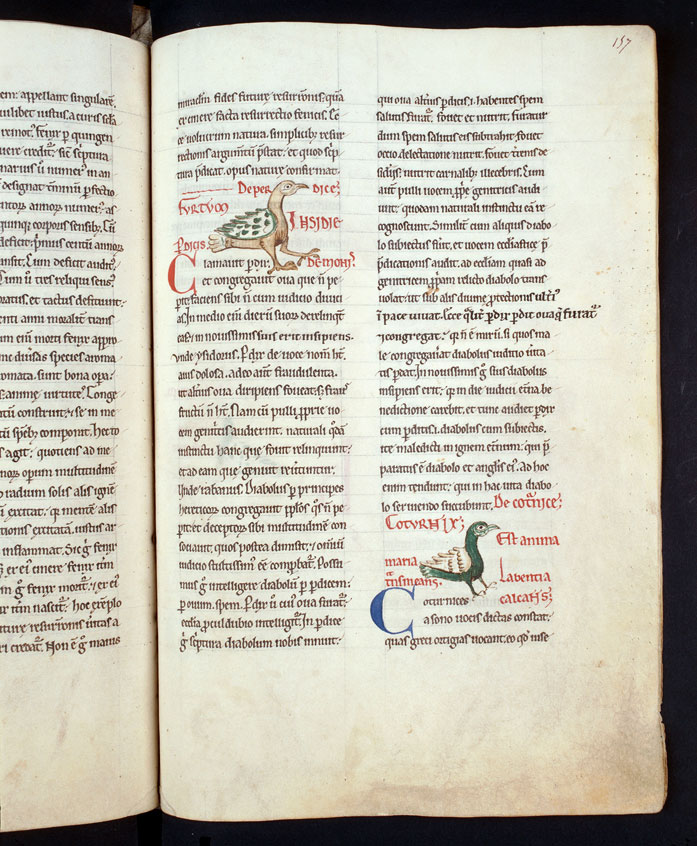 em: appellant singularē.
uilibet iustus. a curis sclī
remot'. fenix p quingen
uere credit̄. sic sc̄ptura
narius ū numer' in an
designat omniū pfectio
intorꝝ annoꝝ numer' as
quinque corporis sensib;. Cū
deficit: primus centū annoꝝ
ansit. Cum deficit audit'.
Cum ū tres reliqui sens'
oratus. et tactus defitiunt.
enti anni moralit̄ trans
um eni morti fenix appro
diuersas species aroma
omata. sunt bona opa.
anime uirtutes. Conge
tū construit. se in me
tū componit. hec to
s agit: quotiens ad me
onoꝝ opum multitudinē
radium solis alis ignē
excitat. mente alis
tionis excitatā. iustus ar
inflammat. Sic g̊ fenix
g̊ fenix morit̄. et ex
nascit̄. hoc exemplo
ture resurrōnis uitas a
ri credat̄. Non ē g̊ maius
157
miraclm fides future resurrōnis. quā
ex cinere facta resurrectio fenicis. Ec
ce uolucrum natura simplicib; resur
rectionis argumtū p̄stat. et quod sc̄p
tura p̄dicat. opus nature confirmat.
De perdice.
fVRTVM
INSIDIE
Pdicis
DEMONIS
Clamauit pdix.
et congregauit oua que ñ pe
pit. faciens sibi ñ cum iudicio diuici
as. In medio eni dierū suoꝝ derelinqt
eas. in nouissimis suis erit insipiens.
vnde ysidorus. Pdix de uoce nom̄ ht̄.
auis dolosa. adeo aut̄ fraudulenta.
ut alti' oua diripiens foueat. s; fraus
fructū ñ ht̄. Nam cū pulli pprie uo
cem genitcis audierint. naturali qdā
instinctu hanc que fouit relinquunt.
et ad eam que genuit reutūntur.
Unde rabanus. Diabolus p principes
hereticoꝝ congregauit pplos qs ñ pe
pit. et deceptoꝝ sibi multitudinē con
souauit. quos postea dimisit. et omniū
iudicio stultissim' ēē compbat̄. Possu
mus g̊ intelligere diabolū p pdicem.
p ouum. spem. Pdix ū cui' oua furat̄.
eccła pcul dubio intelligit̄. In pdice
g̊ sc̄ptura diabolum nobis innuit.
qui oua alti' pdicis. i. habentes spem
salutis furat̄. fouet et nutrit. furatur
dum spem salutis eis subtrahit. fouet
ocio. delectatione nutrit. fouet t̄renis de
sidiis. nutrit carnalib; illecebris. Cum
aut̄ pulli uocem pprie genitricis audi
unt. quodam naturali instinctu eā re
cognoscunt. Similit̄ cum aliquis diabo
lo subiectus fūit. et uocem ecclastice p̄
p̄dicationis audit. ad eccliam quasi ad
genitricem ppam relicto diabolo trans
uolat. ut sub alis diuine ptectionis ulti'
in pace uiuat. Ecce qlit̄ pdix pdit oua q̄ furat̄
congregat. q ñ ē miru. si quos ma
le congregauat diabolus iuditio iuta
tis pdat. In nouissimis g̊ suis diabolus
insipiens erit. q in die iudicii et̄na be
nedictione carebit. et tunc audiet pdix
cum pditis. diabolus cum subiectis.
ite maledicti in ignem et̄num. qui p̄
paratus ē diabolo et angłis ei'. Ad hoc
enim tendunt. qui in hac uita diabo
lo seruiendo succumbunt. De coturnice.
COTVRNIX.
Est anima
maria
transmeans.
labentia
calcans.
Coturnices
a sono uocis dictas constat.
quas greci ortigias uocant. eo qd uise